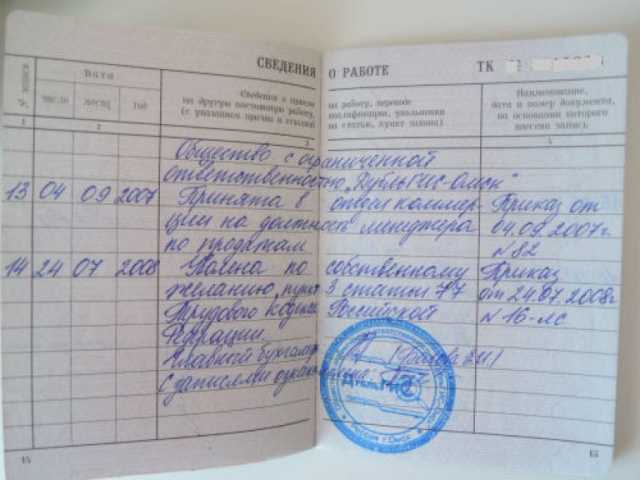 СВЕДЕНИЯ О РАБОТЕ ТК
№ записи Дата Сведения о приеме на работу, переводе Наименование,
число месяц год на другую постоянную работу, квалификации, увольнении дата и номер документа,
(с указанием причин и ссылкой на статью, пункт закона) на основании которого
внесена запись
1 2 3 4
Общество с ограниченной
ответственностью "ДубльГИС-Омск"
13 04 09 2007 Принята в отдел коммер- Приказ от
ции на должность менеджера 04.09.2007г.
по продажам N 82
14 24 07 2008 Уволена по собственному Приказ
желанию, пункт 3 статьи 77 от 24.07.2008г
Трудового Кодекса Российской N 16-лс
Федерации.
Главный бухгалтер
С записями ознакомлена
ДубльГИС
Россия г. Омск